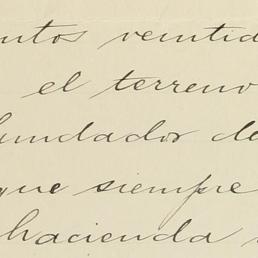 entos veintid
el terreno
fundador de
que siempre
hacienda